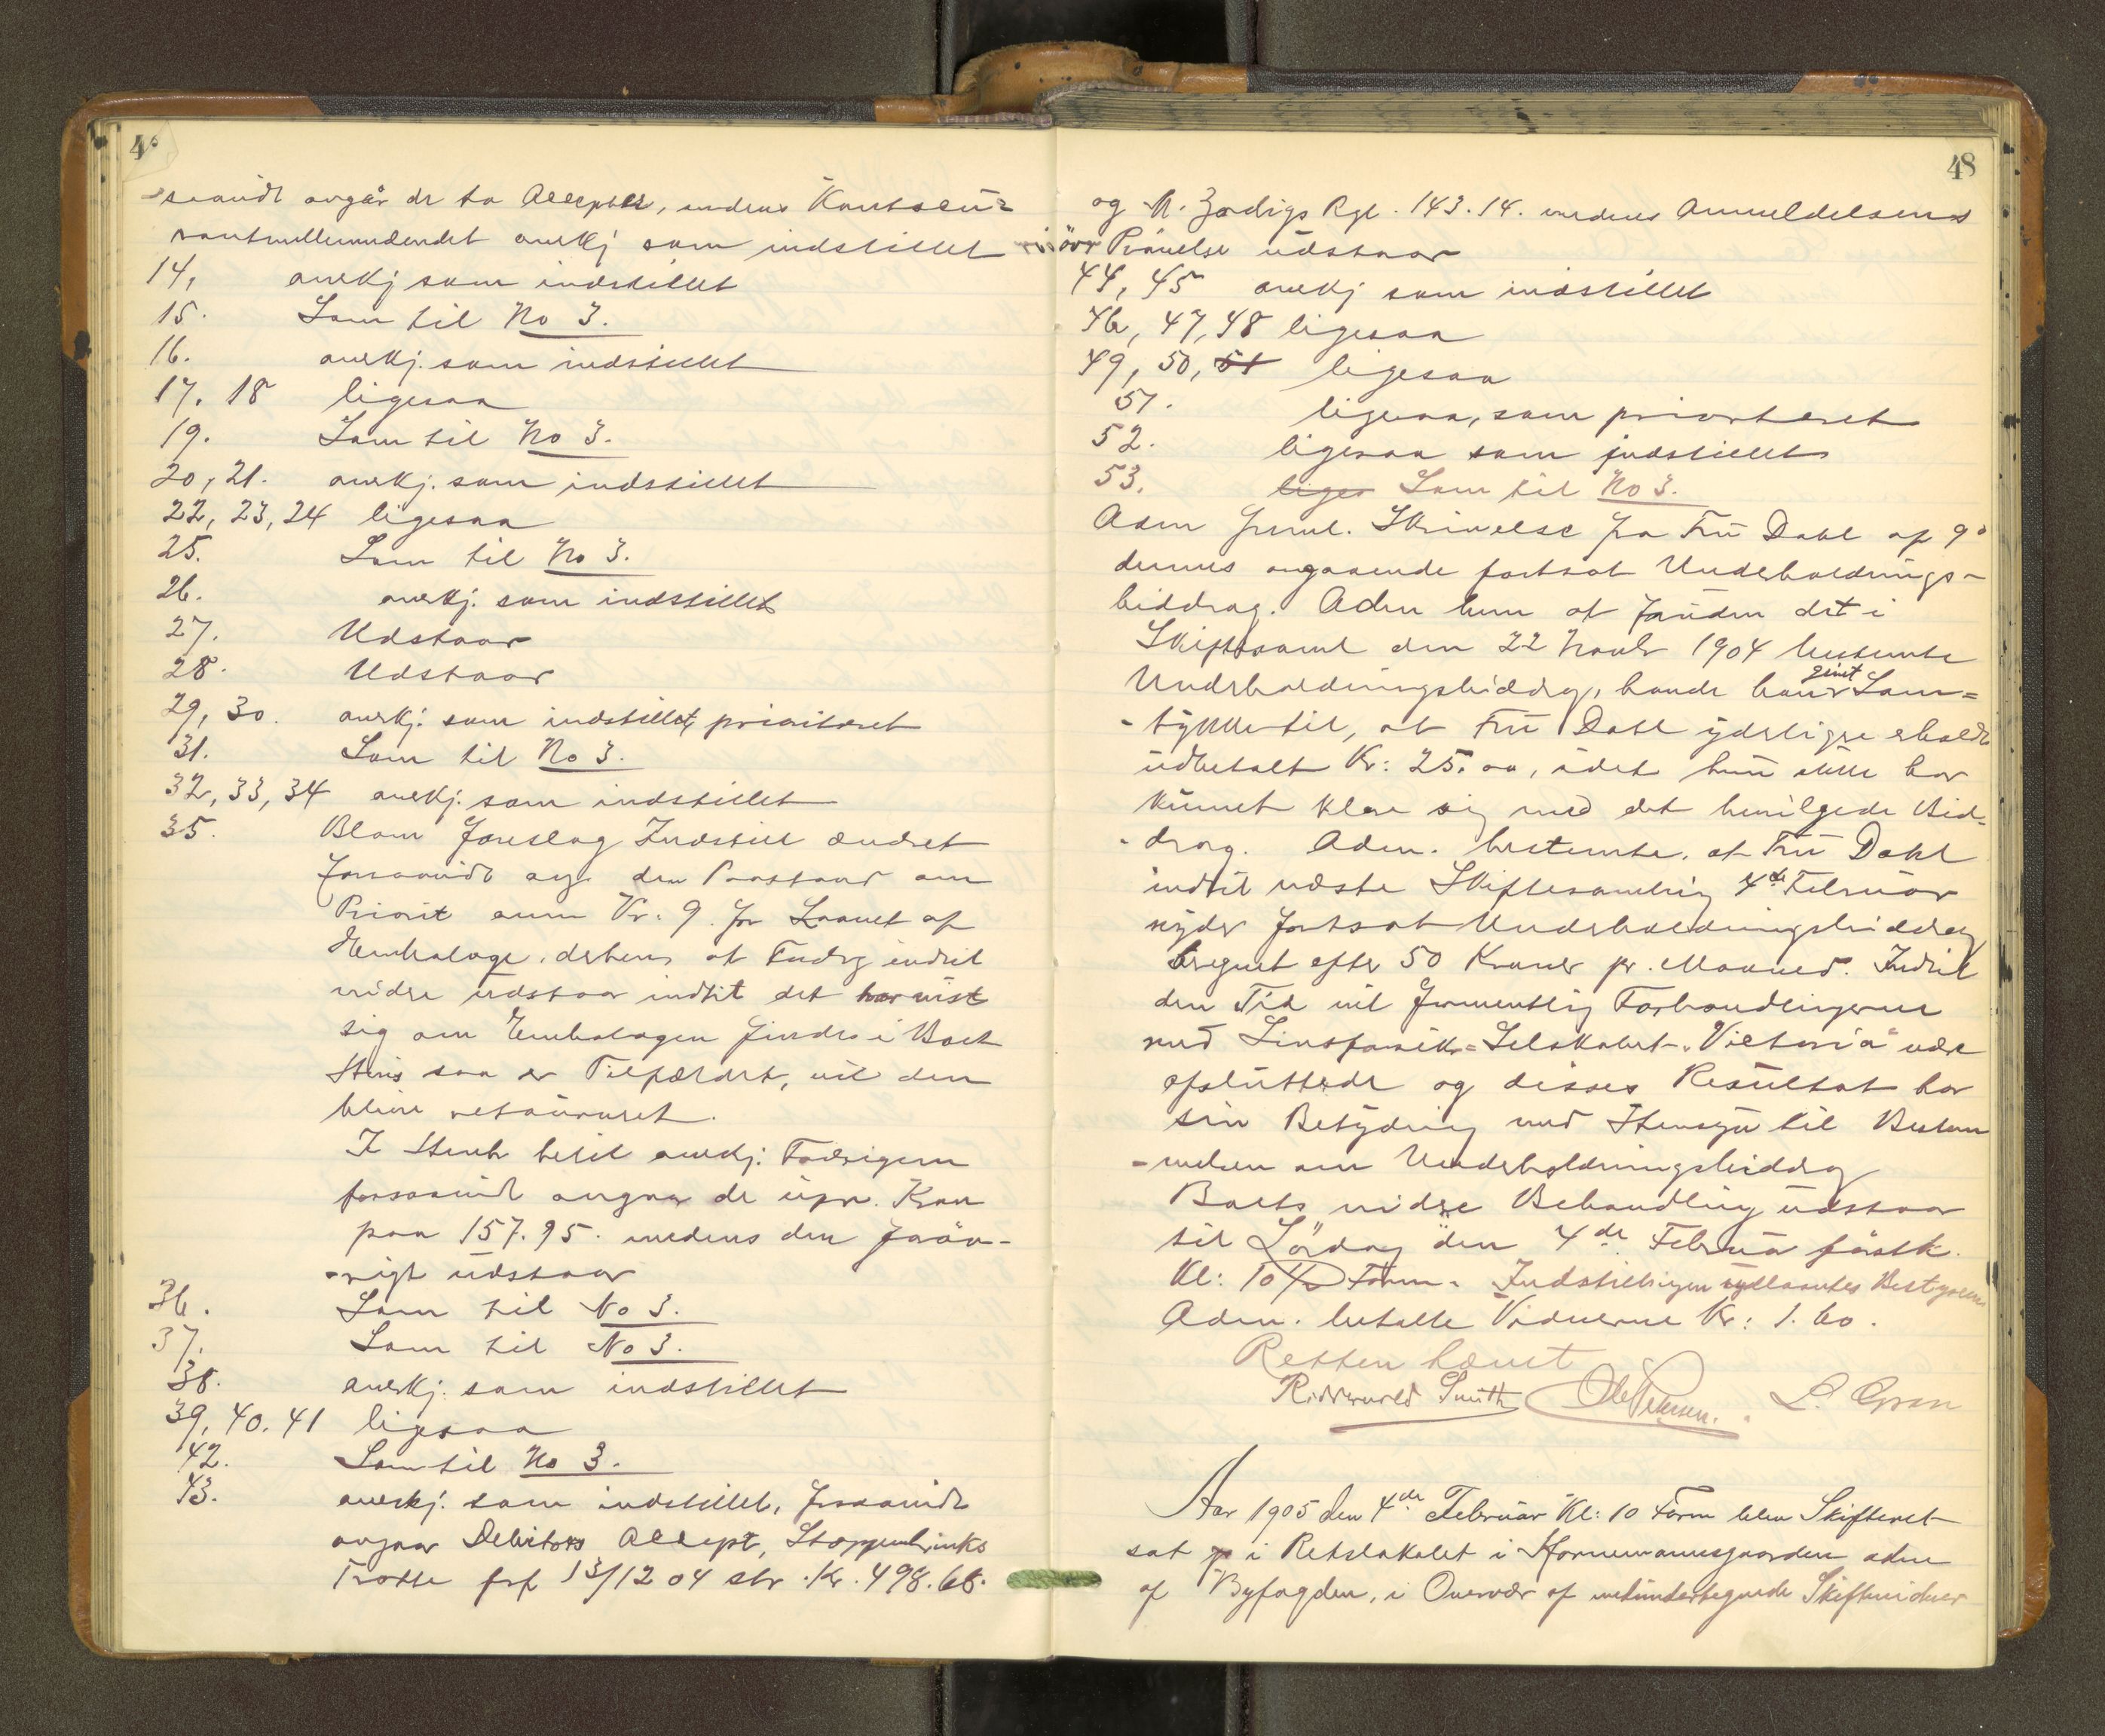 48
-saavidt angår de to Accepter, medens Kontocu-
rantmellemværendet anerkj som indstillet
14, anerkj som indstillet
15. Som til No 3.
16. anerkj. som indstillet
17. 18 ligesaa
19. Som til No 3.
20, 21. anerkj. som indstillet
22, 23, 24 ligesaa
25. Som til No 3.
26. anerkj. som indstillet
27. Udstaar
28. Udstaar
29, 30. anerkj. som indstillet, prioriteret
31. Som til No 3.
32, 33, 34 anerkj. som indstillet
35. Blom foreslog Indstill ændret
forsaavidt ang. den Paastand om
Priorit anm Kr: 9 for Laanet af
Emballage, derhen at Fordrg indtil
vidre udstaar indtil det har vist
sig om Emballagen findes i Boet
Hvis saa er Tilfældet, vil den
blive returneret.
I Henh hertil anerkj. Fordrigen
forsaavidt angaar de upr. Krav
paa 157.95. medens den forøv-
-rigt udstaar
36. Som til No 3.
37. Som til No 3.
38. anerkj. som indstillet
39, 40, 41 ligesaa
42. Som til No 3.
43. anerkj. som indstillet, forsaavidt
angaar Debitors Accept, Stoppenbrinks
Tratte frf 13/12 04 str. Kr. 498.68.
og N. Zadigs Rgl. 143.14. medens Anmeldelsens
i övr Prövelse udstaar
44, 45 anerkj som indstillet
46, 47, 48 ligesaa
49, 50, 51 ligesaa
51. ligesaa, som prioriteret
52. ligesaa som indstillet
53. liges Som til No 3.
Adm freml. Skrivelse fra Fru Dahl af 9d
dennes angaaende fortsat Underholdnings-
biddrag. Adm hen at foruden det i
Skiftesaml den 22 Novbr 1904 bestemte
Underholdningsbiddrag, havde han givet Sam=
-tykke til, at Fru Dahl yderligere erholdt
udbetalt Kr: 25.00, idet hun ikke har
kunnet klare sig med det bevilgede Bid-
-drag. Adm. bestemte, at Fru Dahl
indtil næste Skiftesamling 4de Februar
nyder fortsat Underholdningsbiddrag
beregnet efter 50 Kroner pr. Maaned. Indtil
den Tid vil formentlig Forhandlingerne
med Livsforsikr=Selskabet „Victoria“ være
afsluttede og disses Resultat har
sin Betydning med Hensyn til Bestem
-melsen om Underholdningsbiddrag
Boets vidre Behandling udstaar
til Lördag den 4de Februar förstk.
Kl: 10 1/2 Form. Indstillingen vedlagtes Bestyreren
Adm. betalte Vidnerne Kr: 1.60.
Retten hævet
Ridderwold Smith Ole Pettersen. L. Gran
Aar 1905 den 4de Februar Kl: 10 Form blev Skifteret
sat i Retslokalet i Hornemannsgaarden adm
af Byfogden, i Overvær af medundertegnede Skiftevidner